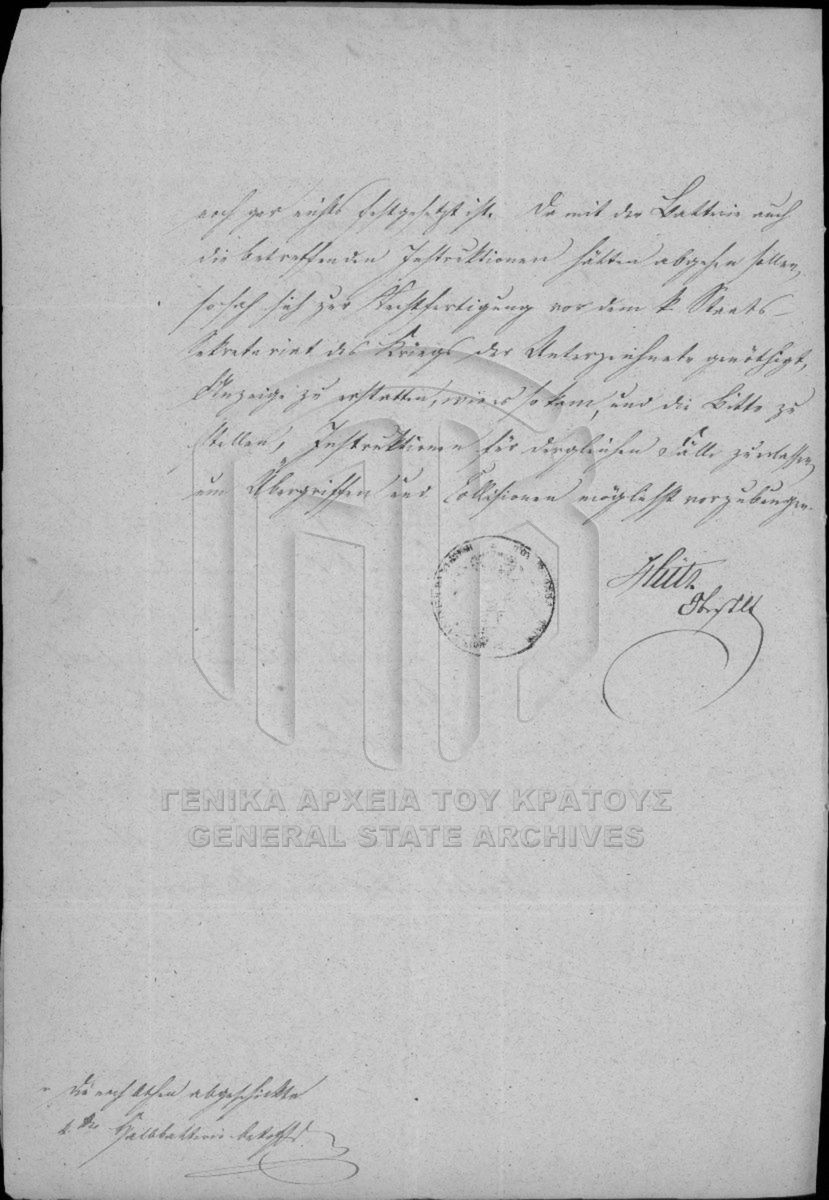 noch gar nichts festgesetzt ist. Da mit der Batterie auch
die betreffenden Instruktionen hätten abgehen sollen,
so sah sich zur Rechtfertigung vor dem k. Staats-
Sekretariat des Kriegs der Unterzeichnete genöthigt,
Anzeige zu erstatten, wie es so kam, und die Bitte zu
stellen, Instruktionen für dergleichen Fälle zu erlassen,
um Übergriffen und Collisionen möglichst vorzubeugen.
Oberstlt
ΓΕΝΙΚΑ ΑΡΧΕΙΑ ΤΟΥ ΚΡΑΤΟΥΣ
GENERAL STATE ARCHIVES
Die nach Athen abgeschickte
Halbbatterie betrffd